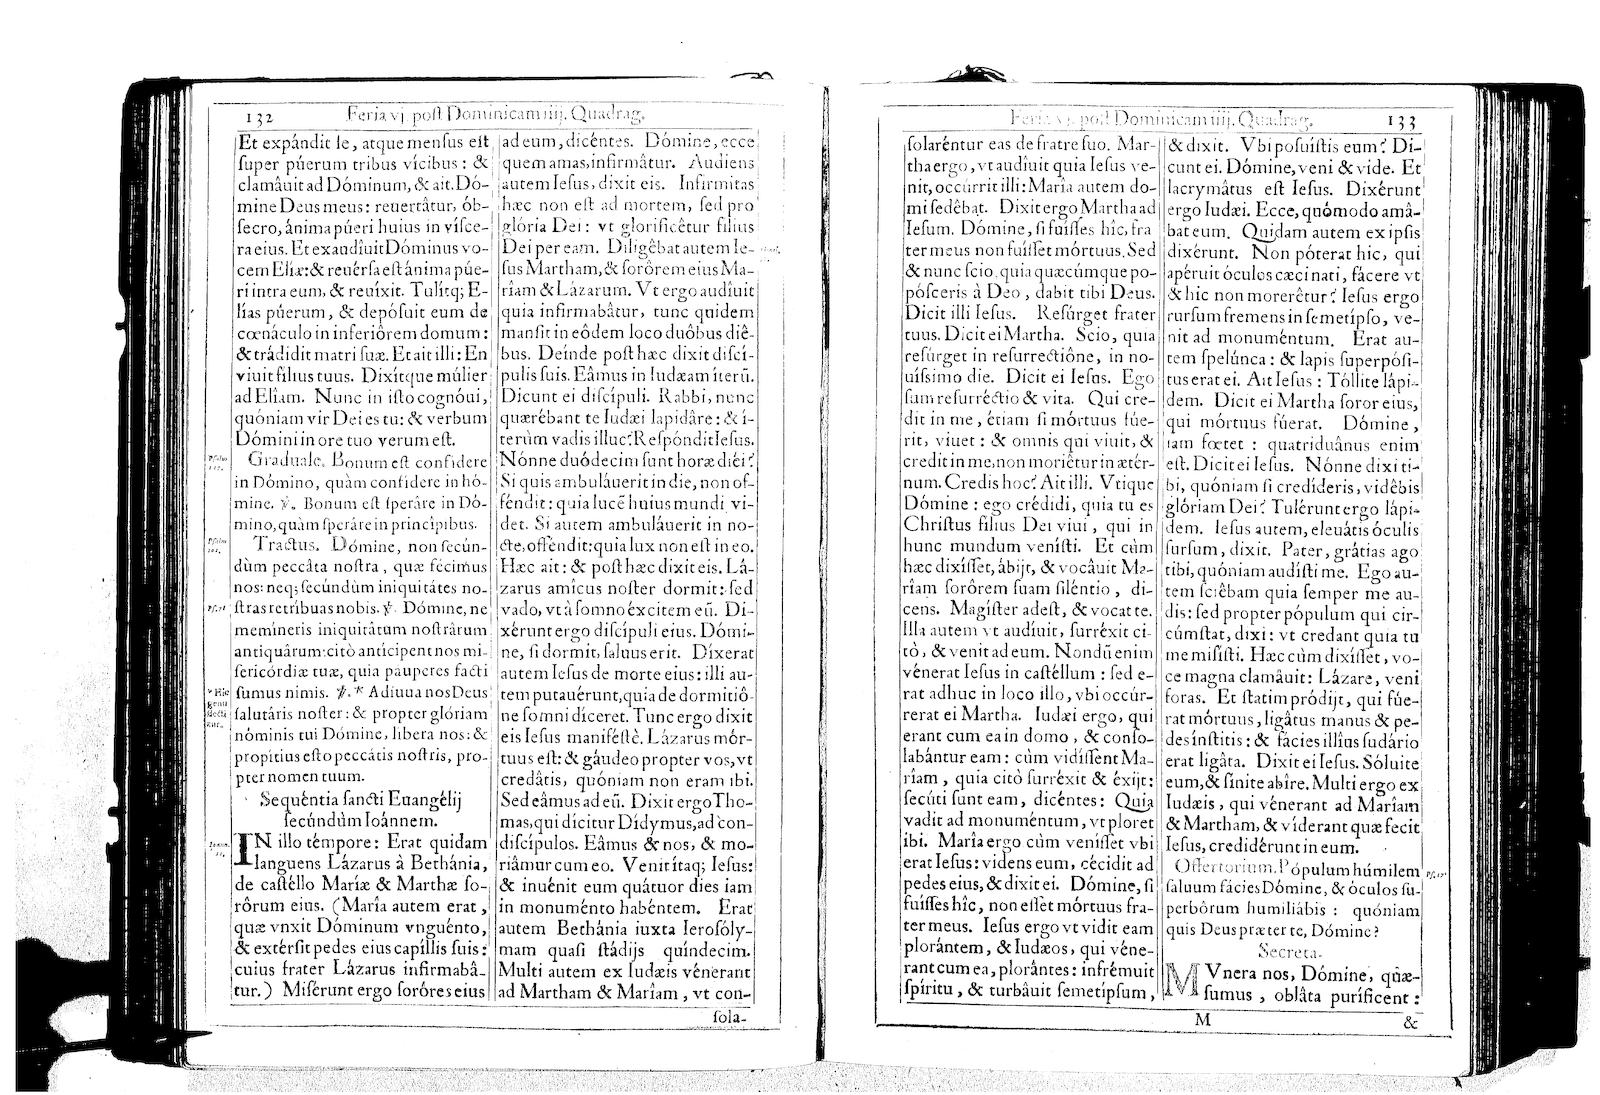 132 Feria vj. post Dominicam iiij. Quadrag.
Et expándit se, atque mensus est
super púerum tribus vícibus : &
clamâuit ad Dóminum, & ait. Dó-
mine Deus meus: reuertâtur, ób-
secro, ánima púeri huius in vísce-
ra eius. Et exaudîuit Dóminus vo-
cem Elîæ: & reuérsa est ánima púe-
ri intra eum, & reuíxit. Tulítq; E-
lîas púerum, & depósuit eum de
cœnáculo in inferiôrem domum :
& trádidit matri suæ. Et ait illi: En
viuit fílius tuus. Dixítque múlier
ad Elîam. Nunc in isto cognóui,
quóniam vir Dei es tu: & verbum
Dómini in ore tuo verum est.
Graduale. Bonum est confídere
in Dómino, quàm confídere in hó-
mine. ℣. Bonum est sperâre in Dó-
mino, quàm sperâre in princípibus.
Tractus. Dómine, non secún-
dùm peccâta nostra, quæ fécimus
nos: neq; secúndùm iniquitátes no-
stras retríbuas nobis. ℣. Dómine, ne
memíneris iniquitâtum nostrârum
antiquârum: citò antícipent nos mi-
sericórdiæ tuæ, quia páuperes facti
sumus nimis. ℣. * Adiuua nos Deus
salutáris noster : & propter glóriam
nóminis tui Dómine, líbera nos: &
propítius esto peccátis nostris, pro-
pter nomen tuum.
Sequéntia sancti Euangélij
secúndùm Ioánnem.
IN illo témpore: Erat quidam
languens Lázarus à Bethánia,
de castéllo Marîæ & Marthæ so-
rôrum eius. (Marîa autem erat,
quæ vnxit Dóminum vnguénto,
& extérsit pedes eius capíllis suis:
cuius frater Lázarus infirmabâ-
tur.) Misérunt ergo soróres eius
ad eum, dicéntes. Dómine, ecce
quem amas, infirmâtur. Audiens
autem Iesus, dixit eis. Infírmitas
hæc non est ad mortem, sed pro
glória Dei : vt glorificêtur fílius
Dei per eam. Diligêbat autem Ie-
sus Martham, & sorôrem eius Ma-
rîam & Lázarum. Vt ergo audîuit
quia infirmabâtur, tunc quidem
mansit in eôdem loco duôbus diê-
bus. Deínde post hæc dixit discí-
pulis suis. Eâmus in Iudæam íterū.
Dicunt ei discípuli. Rabbi, nunc
quærébant te Iudæi lapidâre : & í-
terùm vadis illuc? Respóndit Iesus.
Nónne duódecim sunt horæ diéi?
Si quis ambuláuerit in die, non of-
féndit : quia lucē huius mundi vi-
det. Si autem ambuláuerit in no-
cte, offéndit: quia lux non est in eo.
Hæc ait : & post hæc dixit eis. Lá-
zarus amîcus noster dormit: sed
vado, vt à somno éxcitem eū. Di-
xérunt ergo discípuli eius. Dómi-
ne, si dormit, saluus erit. Díxerat
autem Iesus de morte eius : illi au-
tem putauérunt, quia de dormitiô-
ne somni díceret. Tunc ergo dixit
eis Iesus maniféstè. Lázarus mór-
tuus est: & gáudeo propter vos, vt
credâtis, quóniam non eram ibi.
Sed eâmus ad eū. Dixit ergo Tho-
mas, qui dícitur Dídymus, ad con-
discípulos. Eâmus & nos, & mo-
riâmur cum eo. Venit ítaq; Iesus:
& inuénit eum quátuor dies iam
in monuménto habéntem. Erat
autem Bethánia iuxta Ierosóly-
mam quasi stádijs quíndecim.
Multi autem ex Iudæis vénerant
ad Martham & Marîam, vt con-
sola-
Feria vj. post Dominicam iiij. Quadrag. 133
solaréntur eas de fratre suo. Mar-
tha ergo, vt audîuit quia Iesus ve-
nit, occúrrit illi: Marîa autem do-
mi sedêbat. Dixit ergo Martha ad
Iesum. Dómine, si fuísses hîc, fra
ter meus non fuísset mórtuus. Sed
& nunc scio, quia quæcúmque po-
pósceris à Deo, dabit tibi Deus.
Dicit illi Iesus. Resúrget frater
tuus. Dicit ei Martha. Scio, quia
resúrget in resurrectióne, in no-
uíssimo die. Dicit ei Iesus. Ego
sum resurréctio & vita. Qui cre-
dit in me, étiam si mórtuus fúe-
rit, viuet : & omnis qui viuit, &
credit in me, non moriêtur in ætér-
num. Credis hoc? Ait illi. Vtique
Dómine : ego crédidi, quia tu es
Christus fílius Dei viui, qui in
hunc mundum venísti. Et cùm
hæc dixísset, ábijt, & vocâuit Ma-
rîam sorôrem suam siléntio, di-
cens. Magíster adest, & vocat te.
Illa autem vt audîuit, surréxit ci-
tò, & venit ad eum. Nondū enim
vénerat Iesus in castéllum : sed e-
rat adhuc in loco illo, vbi occúr-
rerat ei Martha. Iudæi ergo, qui
erant cum ea in domo, & conso-
labántur eam : cùm vidíssent Ma-
rîam, quia citò surréxit & éxijt:
secúti sunt eam, dicéntes : Quia
vadit ad monuméntum, vt ploret
ibi. Marîa ergo cùm venísset vbi
erat Iesus: videns eum, cécidit ad
pedes eius, & dixit ei. Dómine, si
fuísses hîc, non esset mórtuus fra-
ter meus. Iesus ergo vt vidit eam
plorántem, & Iudæos, qui véne-
rant cum ea, plorântes: infrémuit
spíritu, & turbâuit semetípsum,
& dixit. Vbi posuístis eum? Di-
cunt ei. Dómine, veni & vide. Et
lacrymâtus est Iesus. Dixérunt
ergo Iudæi. Ecce, quómodo amâ-
bat eum. Quidam autem ex ipsis
dixérunt. Non póterat hic, qui
apéruit óculos cæci nati, fácere vt
& hic non morerêtur? Iesus ergo
rursum fremens in semetípso, ve-
nit ad monuméntum. Erat au-
tem spelúnca : & lapis superpósi-
tus erat ei. Ait Iesus : Tóllite lápi-
dem. Dicit ei Martha soror eius,
qui mórtuus fúerat. Dómine,
iam fœtet : quatriduânus enim
est. Dicit ei Iesus. Nónne dixi ti-
bi, quóniam si credíderis, vidêbis
glóriam Dei? Tulérunt ergo lápi-
dem. Iesus autem, eleuátis óculis
sursum, dixit. Pater, grátias ago
tibi, quóniam audísti me. Ego au-
tem sciêbam quia semper me au-
dis: sed propter pópulum qui cir-
cúmstat, dixi : vt credant quia tu
me misísti. Hæc cùm dixísset, vo-
ce magna clamâuit: Lázare, veni
foras. Et statim pródijt, qui fúe-
rat mórtuus, ligâtus manus & pe-
des ínstitis : & fácies illîus sudário
erat ligâta. Dixit ei Iesus. Sóluite
eum, & sínite abîre. Multi ergo ex
Iudæis, qui vénerant ad Marîam
& Martham, & víderant quæ fecit
Iesus, credidérunt in eum.
Offertorium. Pópulum húmilem
saluum fácies Dómine, & óculos su-
perbôrum humiliábis : quóniam
quis Deus præter te, Dómine?
Secreta.
MVnera nos, Dómine, quæ-
sumus, oblâta puríficent :
M &